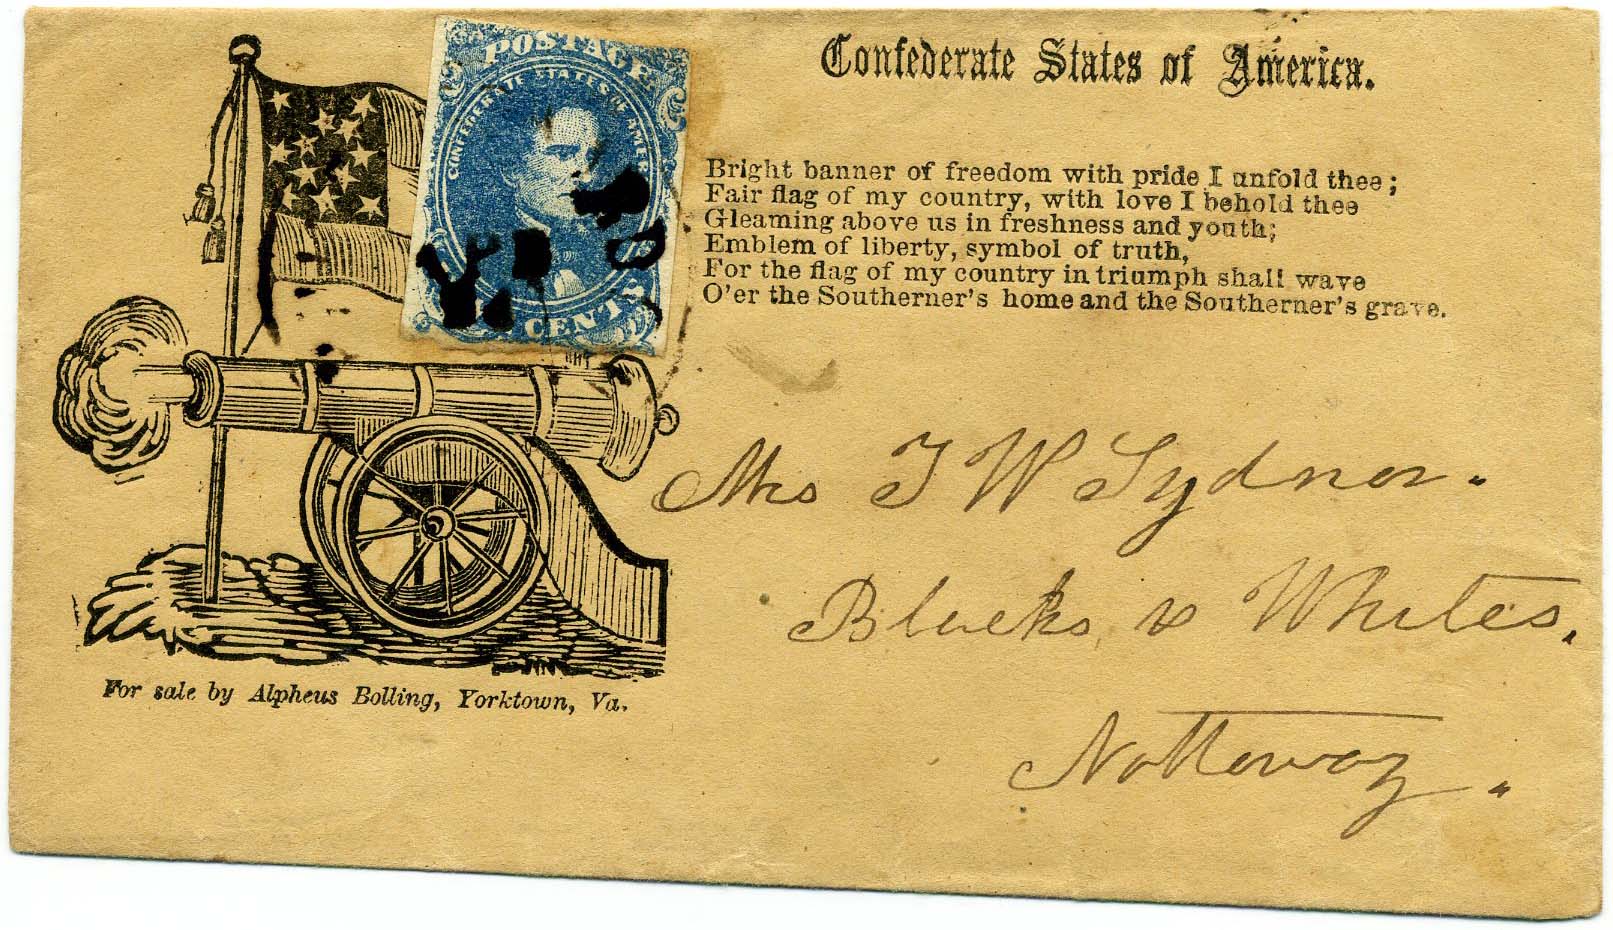 POSTAGE
CONFEDERATE STATES OF AMERICA
CENTS
Confederate States of America.
Bright banner of freedom with pride I unfold thee;
Fair flag of my country, with love I behold thee
Gleaming above us in freshness and youth;
Emblem of liberty, symbol of truth,
For the flag of my country in triumph shall wave
O'er the Southerner's home and the Southerner's grave.
Mrs T W Sydnor.
Blacks & Whites.
Nottoway.
For sale by Alpheus Bolling, Yorktown, Va.